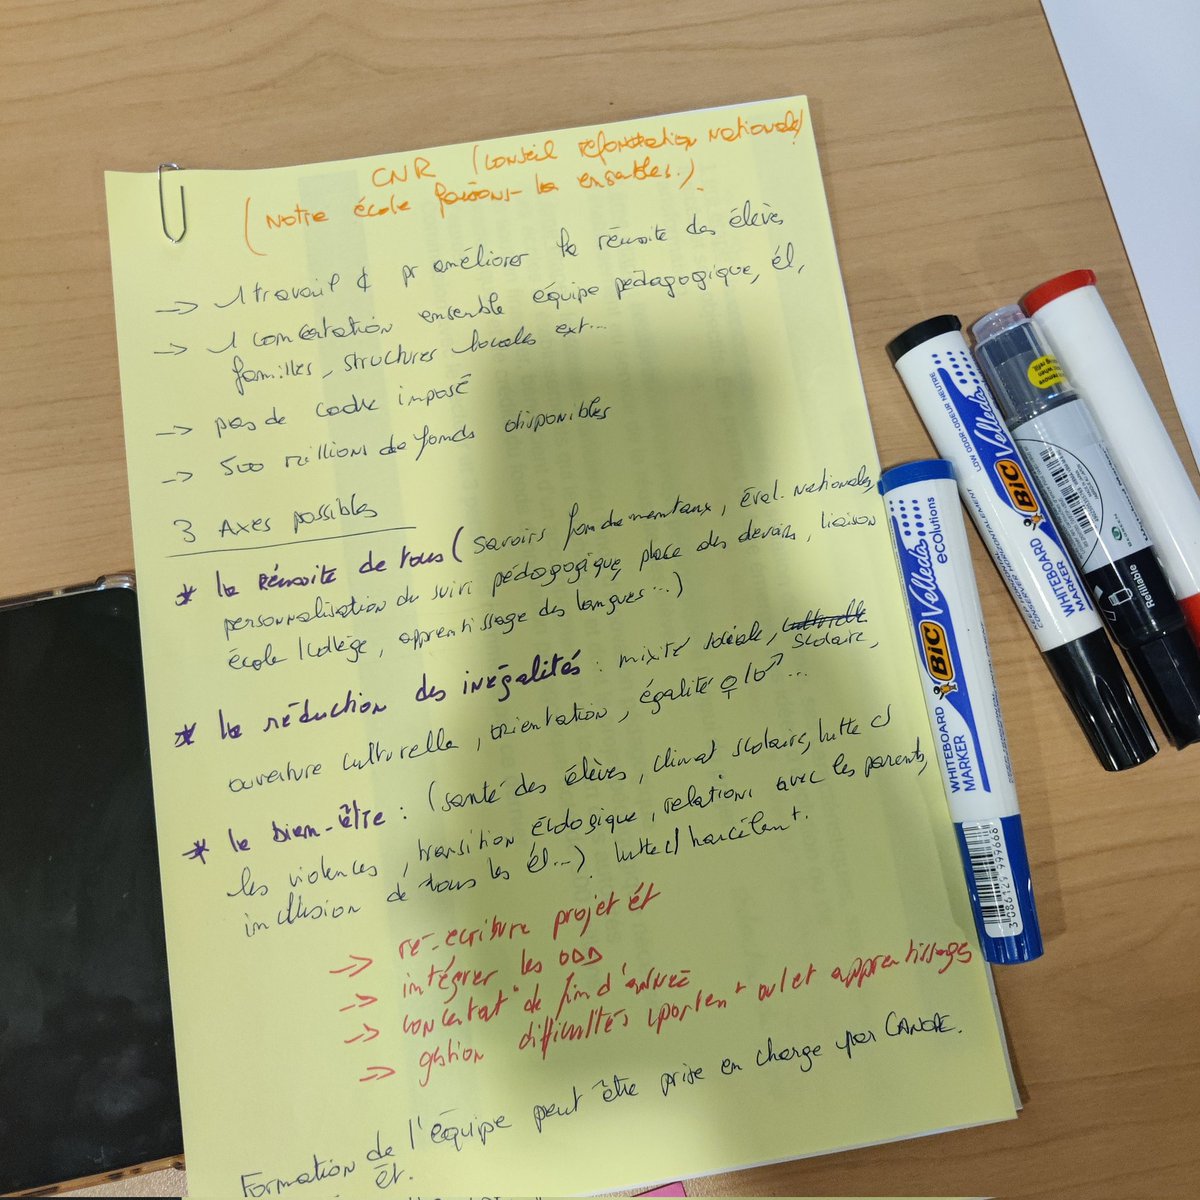 CNR (Conseil refondation nationale)
(Notre école faisons-la ensembles.)
→ 1 travail pr améliorer la réussite des élèves
→ 1 concertation ensemble équipe pédagogique, él,
familles, structures locales ext...
→ pas de cadre imposé
→ 500 millions de fonds disponibles
3 Axes possibles
* la réussite de tous (savoirs fondamentaux, éval. nationales,
personnalisation du suivi pédagogique, place des devoirs, liaison
école/collège, apprentissage des langues...)
* la réduction des inégalités : mixité sociale, culturelle scolaire,
ouverture culturelle, orientation, égalité ♀/♂ ...
* le bien-être : (santé des élèves, climat scolaire, lutte c/
les violences, transition écologique, relations avec les parents,
inclusion de tous les él...) lutte c/ harcèlent.
→ ré-écriture projet ét
→ intégrer les ODD
→ concertat° de fin d'année
→ gestion difficultés comportent et apprentissages
Formation de l'équipe peut être prise en charge par CANOPE.
ét.
BIC Velleda
ecolutions
WHITEBOARD
MARKER
3 086129 999668
BIC Velleda
WHITEBOARD
MARKER
LOW ODOR-ODEUR NEUTRE
CONSERVER HORIZONTALEMENT
Refillable